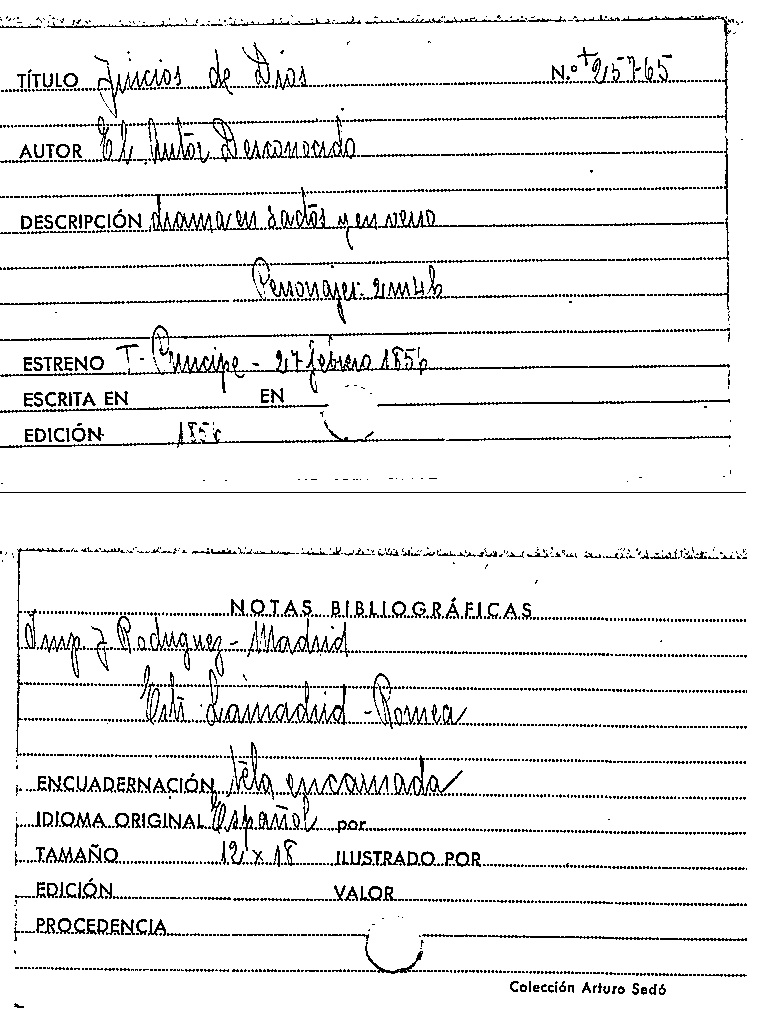 TÍTULO Juicios de Dios N.º + 25765
AUTOR El Autor Desconocido
DESCRIPCIÓN drama en 3 actos y en verso
Personajes: 2m4h
ESTRENO T. Principe - 27 febrero 1856
ESCRITA EN EN
EDICIÓN 1856
NOTAS BIBLIOGRÁFICAS
Imp J Rodriguez - Madrid
Estr Lamadrid - Romea
ENCUADERNACIÓN tela encarnada
IDIOMA ORIGINAL Español por
TAMAÑO 12 x 18 ILUSTRADO POR
EDICIÓN VALOR
PROCEDENCIA
Colección Arturo Sedó